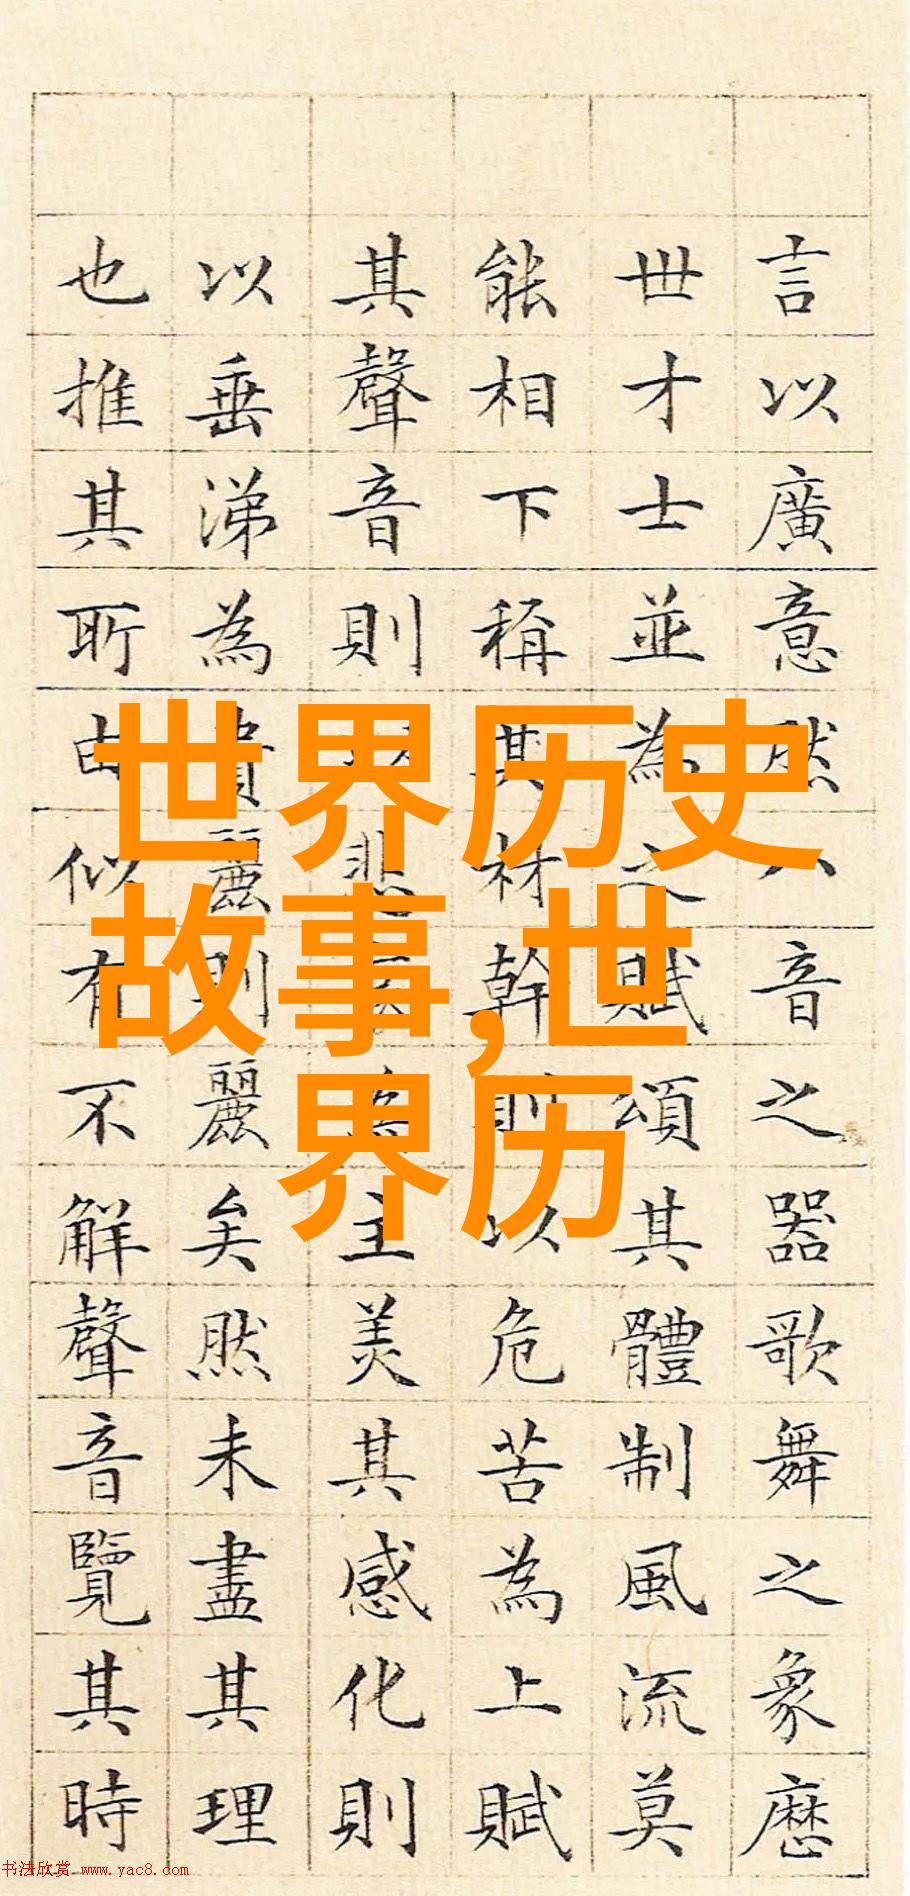 世界历史
故事,世
界历
言以廣意然八音之器歌舞之象歷
世才士並為之賦頌其體制風流莫
能相下稱其材幹則以危苦為上賦
其聲音則以悲哀為主美其感化則
以垂涕為貴麗則麗矣然未盡其理
也推其所由似有不解聲音覽其時
书法欣赏 www.yac8.com